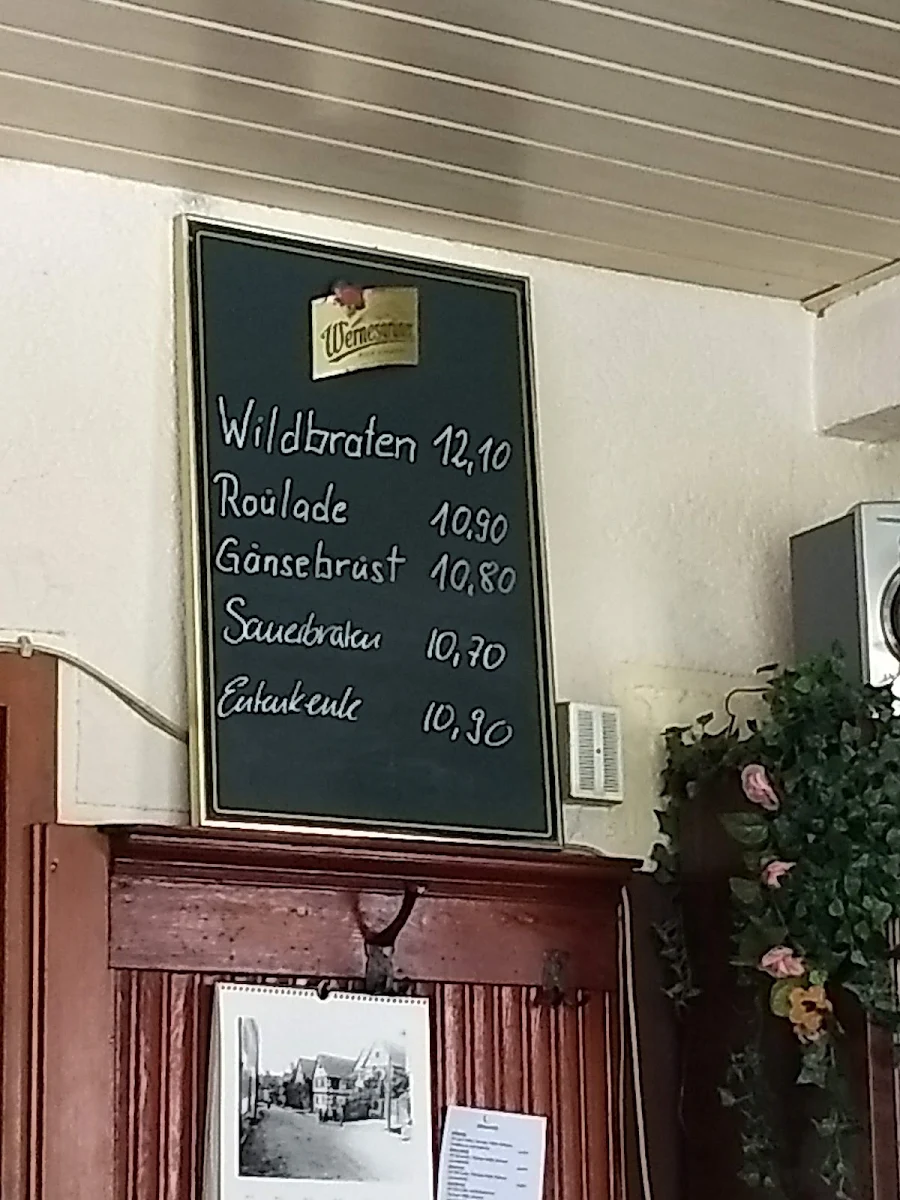 Wernesgrüner
Wildbraten 12,10
Roulade 10,90
Gänsebrust 10,80
Sauerbraten 10,70
Entenkeule 10,90